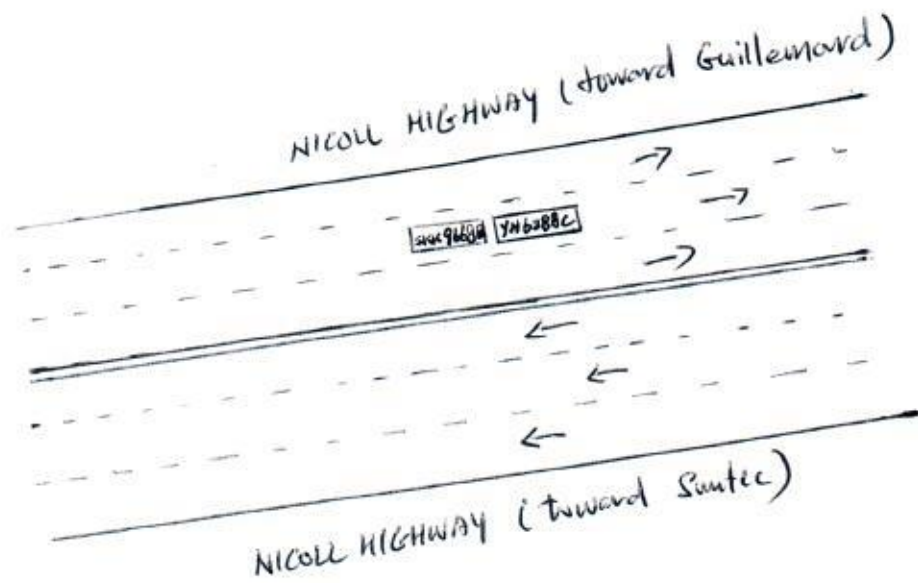 NICOLL HIGHWAY (toward Guillemard)
YN6288C
NICOLL HIGHWAY (toward Suntec)